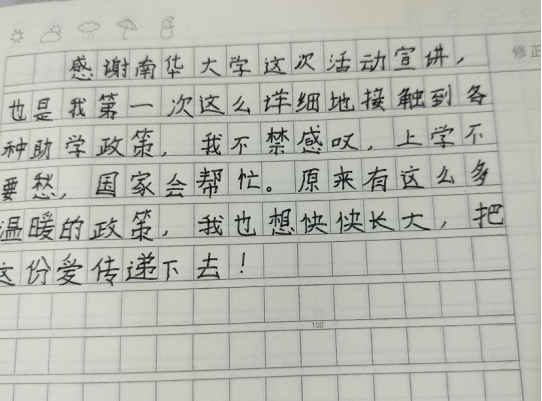 修正
感谢南华大学这次活动宣讲，
也是我第一次这么详细地接触到各
种助学政策，我不禁感叹，上学不
要愁，国家会帮忙。原来有这么多
温暖的政策，我也想快快长大，把
这份爱传递下去！
100